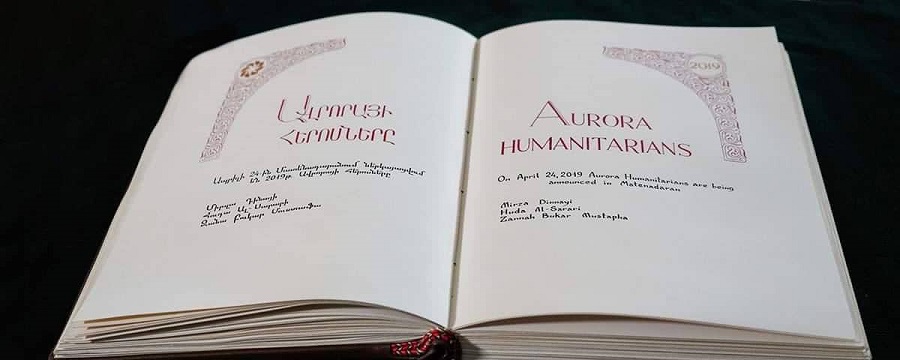 ԱՎՐՈՐԱՅԻ
ՀԵՐՈՍՆԵՐԸ
Ապրիլի 24-ին Մատենադարանում ներկայացվում
են 2019թ Ավրորայի Հերոսները
Միրզա Դինայի
Հուդա Ալ-Սարարի
Զաննա Բուկար Մուստաֆա
2019
AURORA
HUMANITARIANS
On April 24, 2019 Aurora Humanitarians are being
announced in Matenadaran
Mirza Dinnayi
Huda Al-Sarari
Zannah Bukar Mustapha